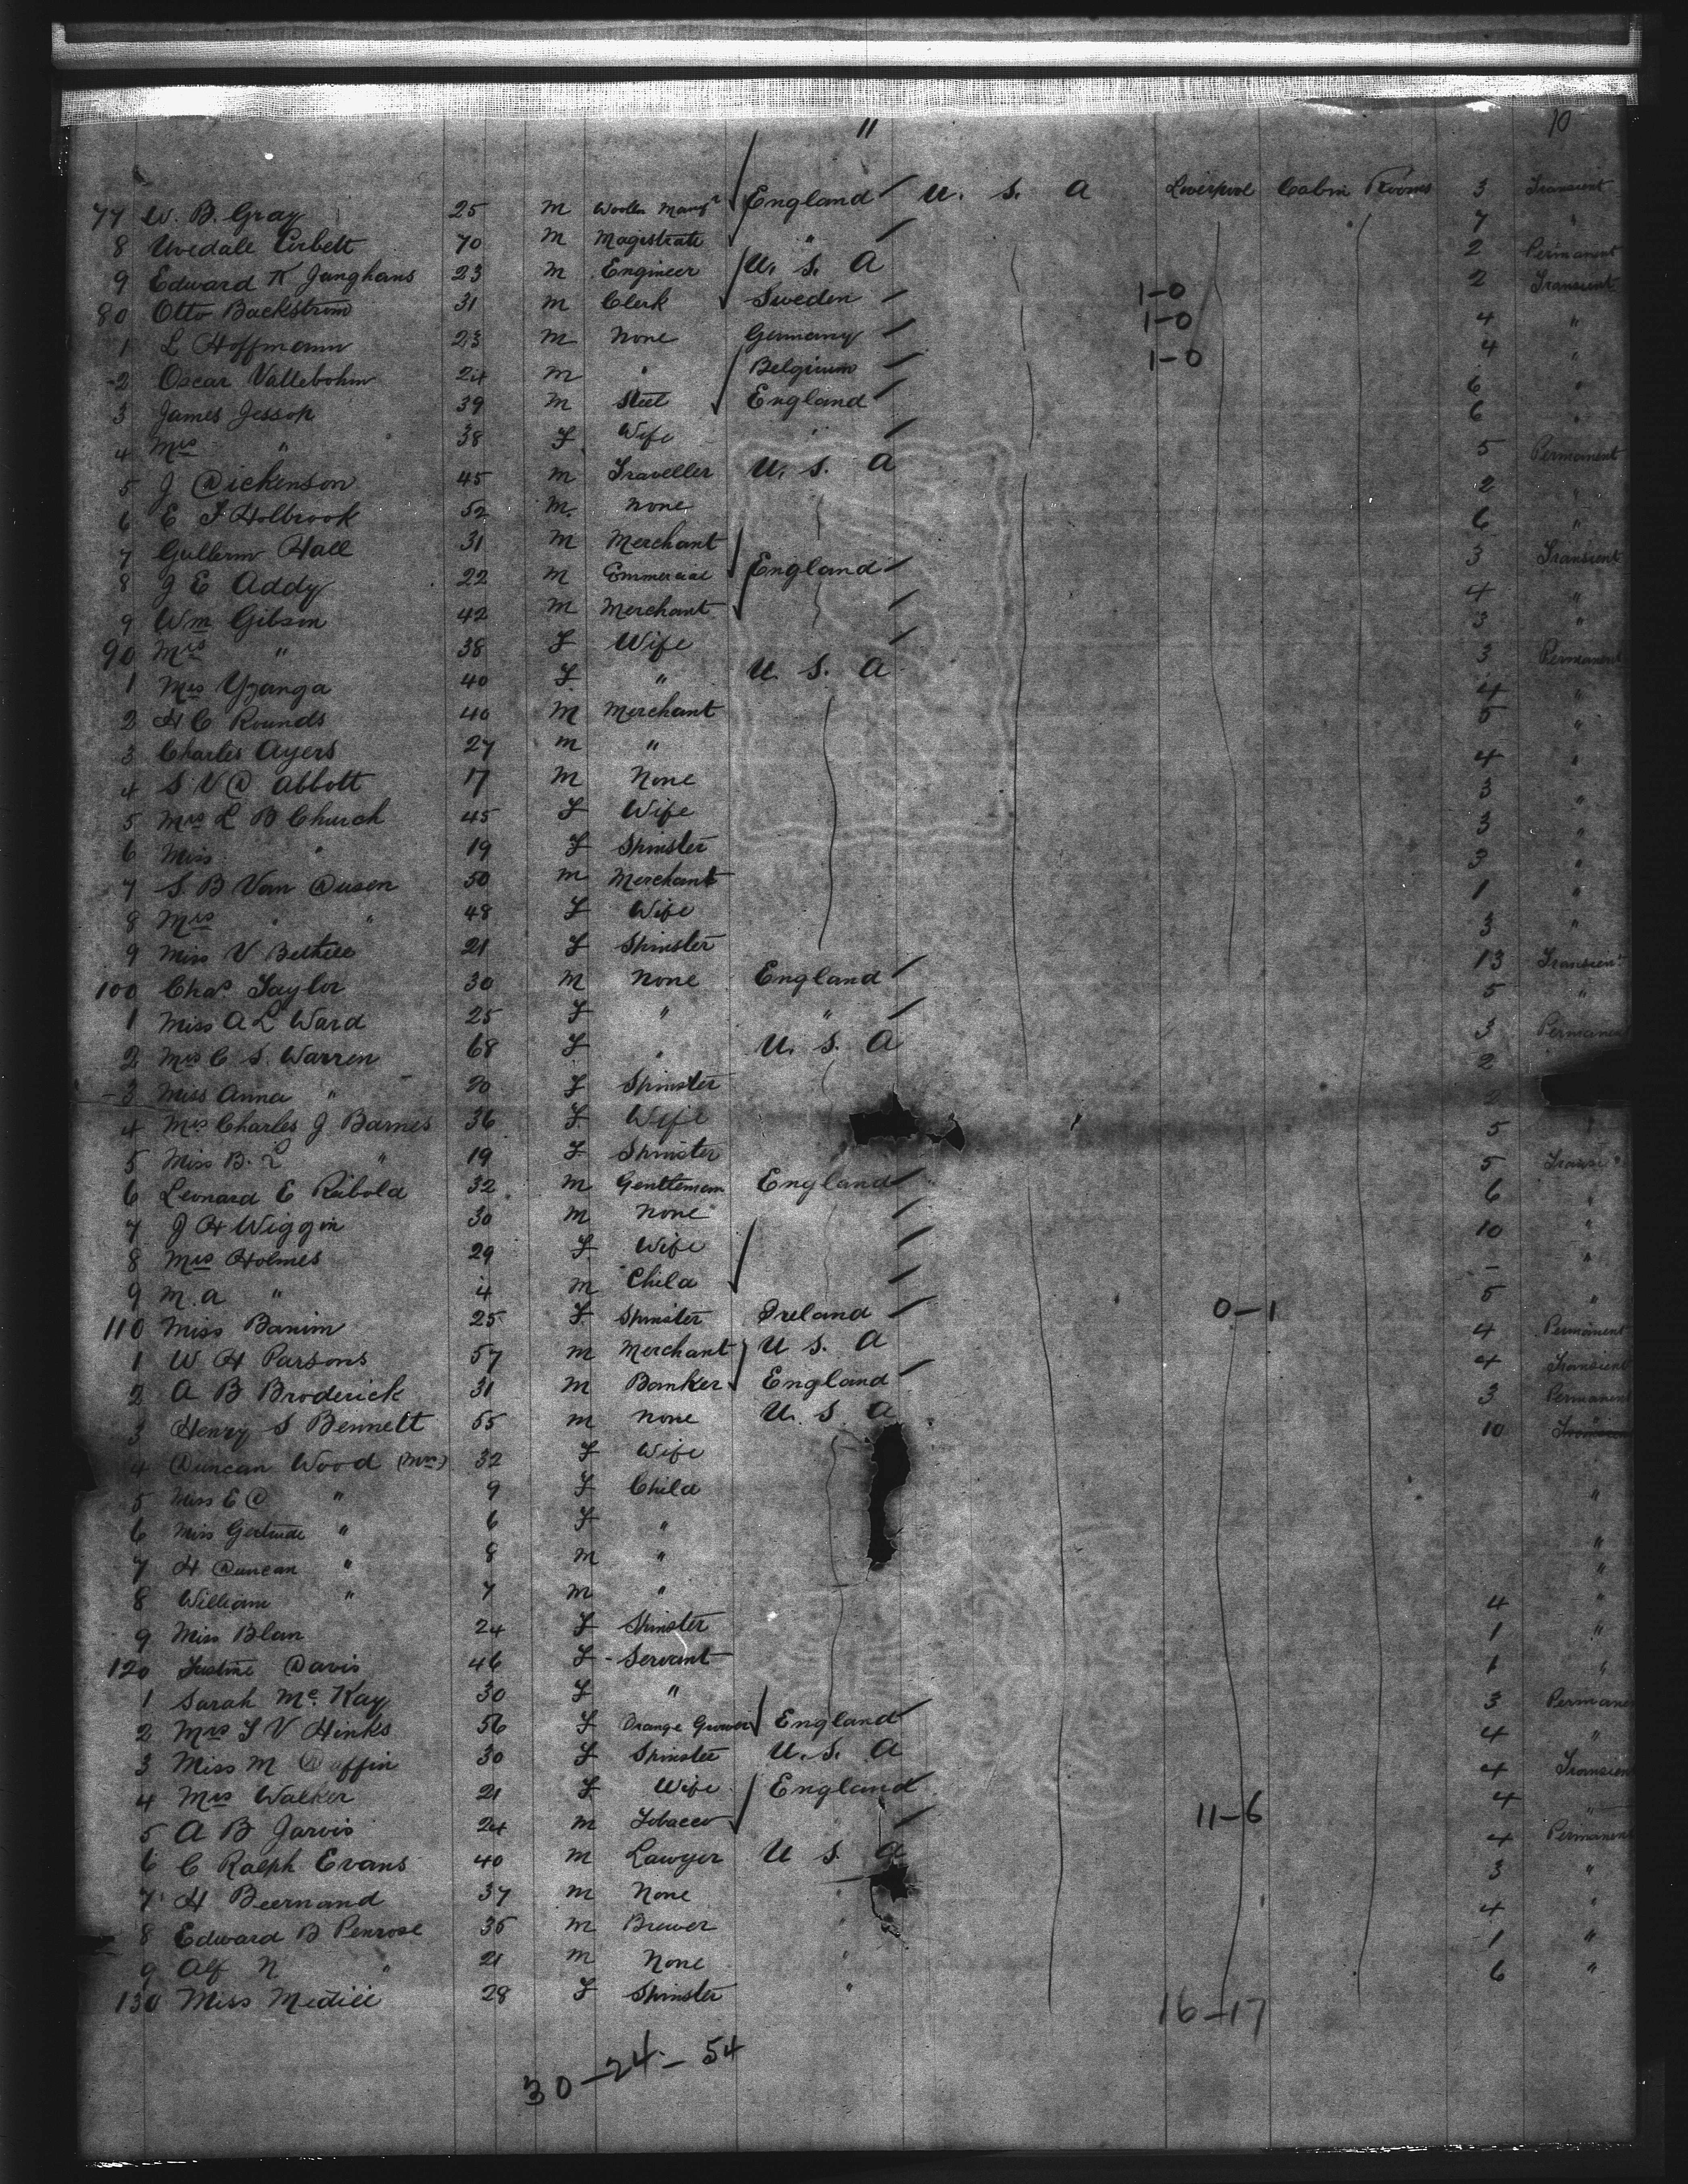 11
10
77 W. B. Gray 25 m Woollen Manfr England U. S. A Liverpool Cabin Rooms 3 Transient
8 Uvedale Corbett 70 m Magistrate " 7 "
9 Edward K Junghans 23 m Engineer U. S. A 2 Permanent
80 Otto Backstrom 31 m Clerk Sweden 1-0 2 Transient
1 L Hoffmann 23 m None Germany 1-0 4 "
2 Oscar Vallebohm 24 m " Belgium 1-0 4 "
3 James Jessop 39 m Steel England 6 "
4 Mrs " 38 F Wife " 6 "
5 J Dickenson 45 m Traveller U. S. A 5 Permanent
6 E F Holbrook 52 m. None 2 "
7 Gullerm Hall 31 m Merchant 6 "
8 J E Addy 22 m Commercial England 3 Transient
9 Wm Gibson 42 m Merchant 4 "
90 Mrs " 38 F Wife 3 "
1 Mrs Yzanga 40 F " U. S. A 3 Permanent
2 H C Rounds 40 m Merchant 4 "
3 Charles Ayers 27 m " 5 "
4 S V D Abbott 17 m None 4 "
5 Mrs L B Church 45 F Wife 3 "
6 Miss " 19 F Spinster 3 "
7 S. B Van Dusen 50 m Merchant 3 "
8 Mrs " " 48 F Wife 1 "
9 Miss V Bethell 21 F Spinster 3 "
100 Chas. Taylor 30 m None England 13 Transient
1 Miss A L Ward 25 F " " 5 "
2 Mrs C S. Warren 68 F " U. S. A 3 Permanent
3 Miss Anna " 20 F Spinster 2
4 Mrs Charles J Barnes 36 F Wife 2
5 Miss B. L " 19 F Spinster 5
6 Leonard E Reibold 32 m Gentleman England 5 Transient
7 J H Wiggin 30 m None 6 "
8 Mrs Holmes 29 F Wife 10 "
9 M. A " 4 m Child - "
110 Miss Banim 25 F Spinster Ireland 0-1 5 "
1 W H Parsons 57 m Merchant U S. A 4 Permanent
2 A B Broderick 31 m Banker England 4 Transient
3 Henry S Bennett 55 m None U. S. A 3 Permanent
4 Duncan Wood (Mrs) 32 F Wife 10
5 Miss E D " 9 F Child "
6 Miss Gertrude " 6 F "
7 H Duncan " 8 m " "
8 William " 7 m " "
9 Miss Blan 24 F Spinster 4 "
120 Justine Davis 46 F Servant 1 "
1 Sarah Mc Kay 30 F " 1 "
2 Mrs F V Hinks 56 F Orange Grower England 3 Permanent
3 Miss M Coffin 30 F Spinster U. S. A 4 "
4 Mrs Walker 21 F Wife England 4 Transient
5 A B Jarvis 24 m Tobacco 11-6 4 "
6 C Ralph Evans 40 m Lawyer U S. A 4 Permanent
7 H Beernand 37 m None " 3 "
8 Edward B Penrose 35 m Brewer " 4 "
9 Alf N " 21 m None " 1 "
130 Miss Medill 28 F Spinster " 6 "
16-17
30-24-54